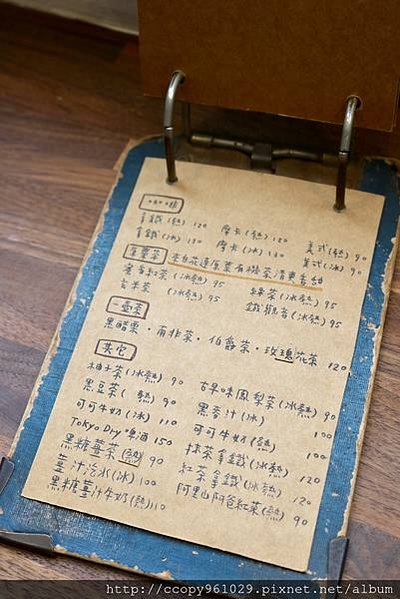 咖啡
拿鐵(熱) 120 摩卡(熱) 130 美式(熱) 90
拿鐵(冰) 130 摩卡(冰) 130 美式(冰) 90
原葉茶 來自花蓮原葉有機茶清爽香甜
蜜香紅茶(冰熱) 95 綠茶(冰熱) 95
玄米茶 (冰熱) 95 鐵觀音(冰熱) 95
一壺茶
黑醋栗・南非茶・伯爵茶・玫瑰花茶 120
其它
柚子茶(冰熱) 90 古早味鳳梨茶(冰熱) 90
黑豆茶( 熱) 90 黑麥汁(冰) 100
可可牛奶(冰) 110 可可牛奶(熱) 100
Tokyo Dry 啤酒 150 抹茶拿鐵(冰熱) 120
黑糖薑茶(熱) 90 紅茶拿鐵(冰熱) 120
薑汁汽水(冰) 100 阿里山阿爸紅茶(熱) 90
黑糖薑汁牛奶(熱) 110
http://ccopy961029.pixnet.net/album